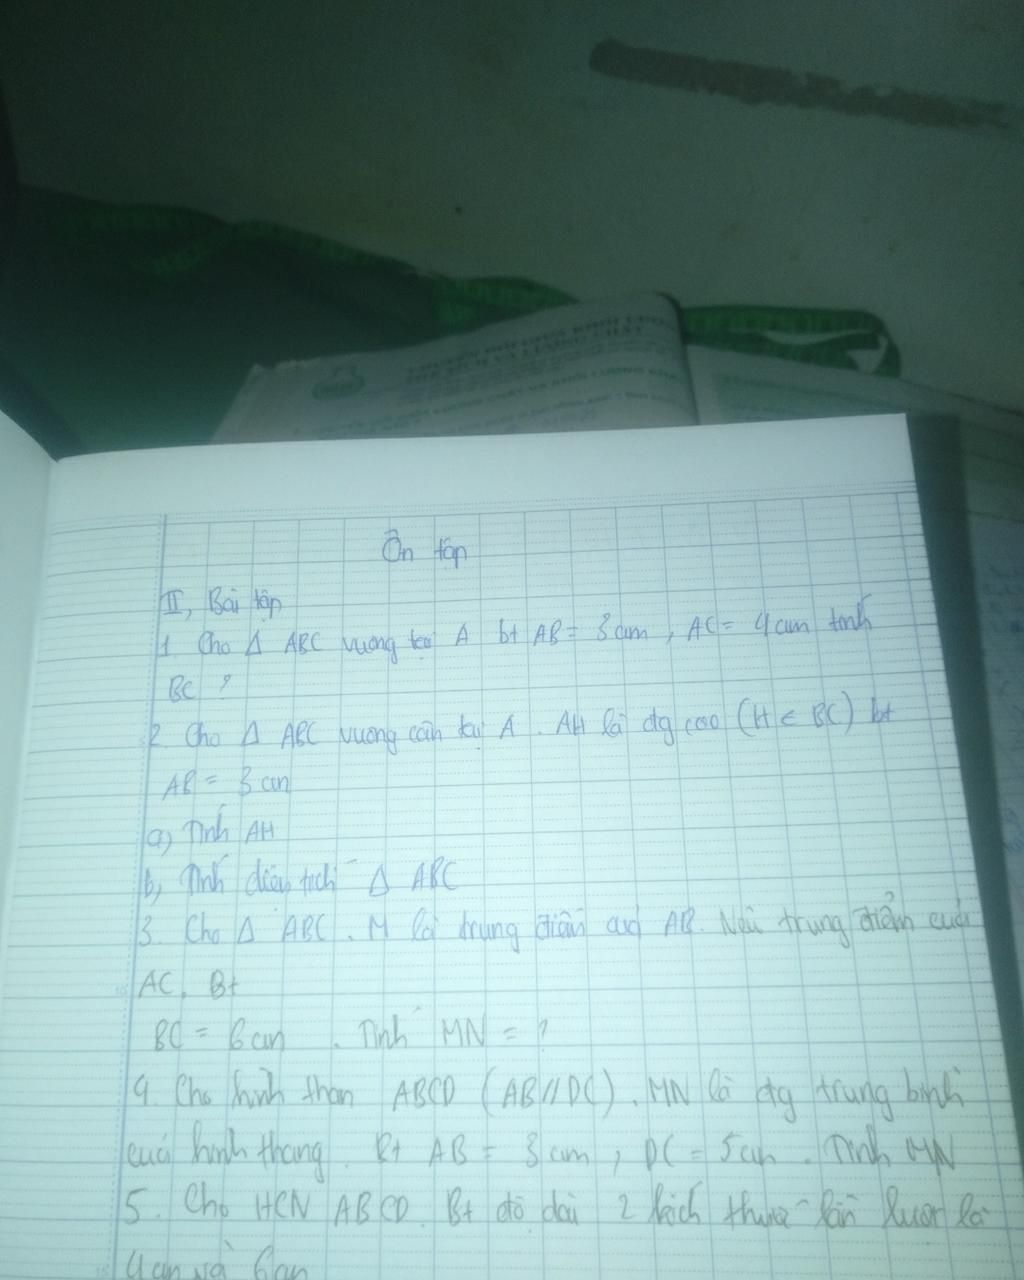 CHUYỂN ĐỔI GIỮA KHỐI LƯỢNG
THỂ TÍCH VÀ LƯỢNG CHẤT
Ôn tập
II, Bài tập
1. Cho Δ ABC vuông tại A bt AB = 3cm, AC = 4cm tính
BC ?
2. Cho Δ ABC vuông cân tại A. AH là đg cao (H ∈ BC) bt
AB = 3cm
a, Tính AH
b, Tính diện tích Δ ABC
3. Cho Δ ABC. M là trung điểm của AB. N là trung điểm của
AC. Bt
BC = 6cm. Tính MN = ?
4. Cho hình than ABCD (AB//DC). MN là đg trung bình
của hình thang. Bt AB = 3cm, DC = 5cm. Tính MN
5. Cho HCN ABCD. Bt độ dài 2 kích thước lần lượt là
4cm và 6cm